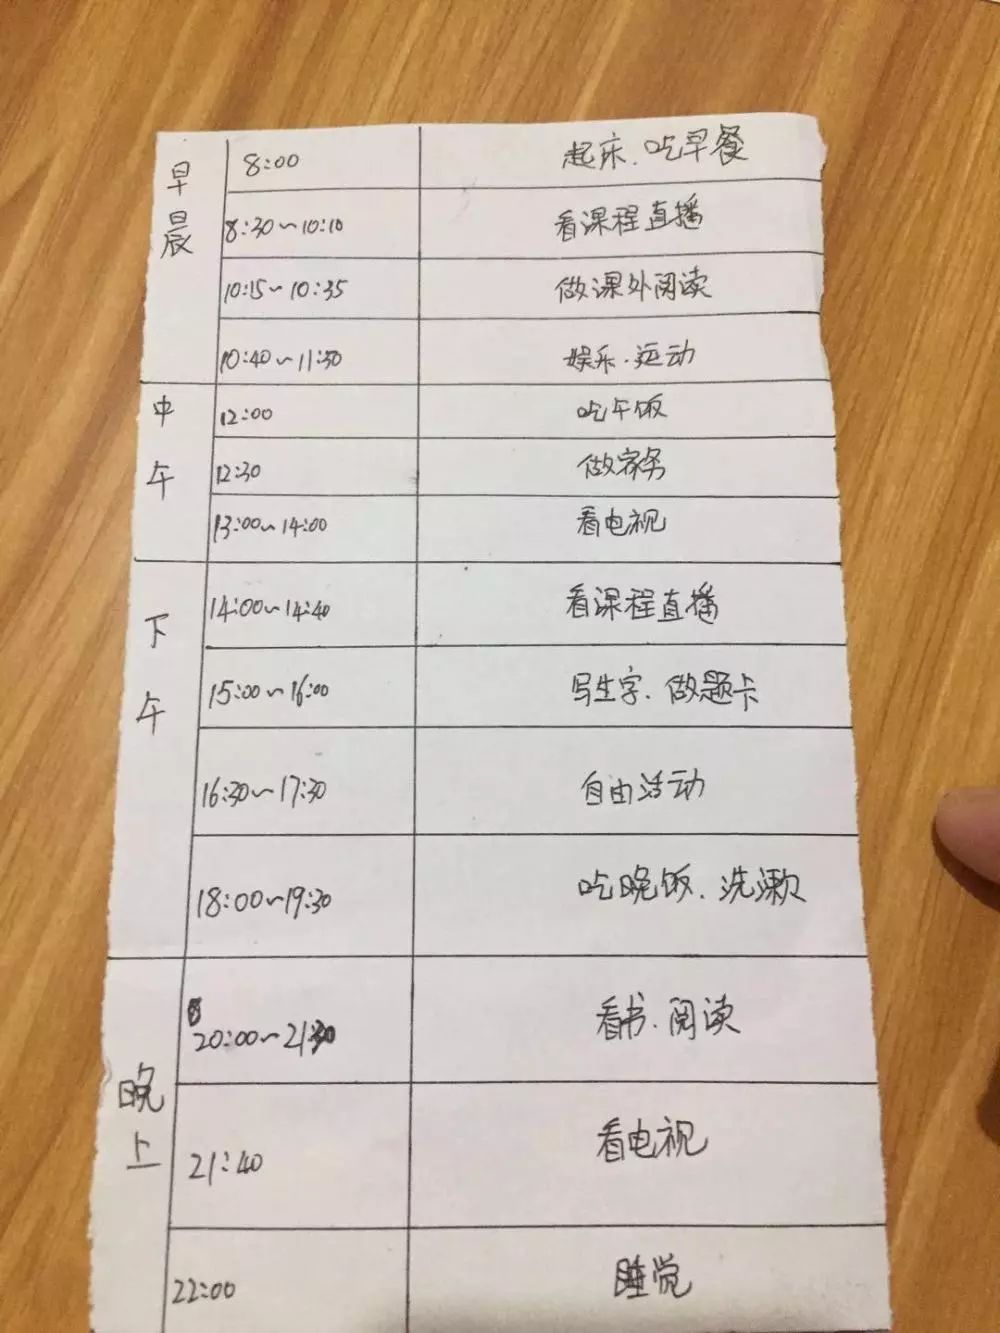 早晨
8:00 起床、吃早餐
8:30~10:10 看课程直播
10:15~10:35 做课外阅读
10:40~11:30 娱乐·运动
中午
12:00 吃午饭
12:30 做家务
13:00~14:00 看电视
下午
14:00~14:40 看课程直播
15:00~16:00 写生字、做题卡
16:30~17:30 自由活动
18:00~19:30 吃晚饭、洗漱
晚上
20:00~21:30 看书、阅读
21:40 看电视
22:00 睡觉